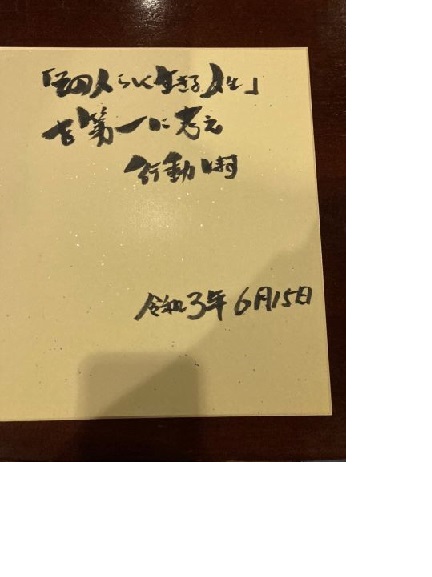 「その人らしく生きる人生」
を第一に考え
行動します
令和3年6月15日